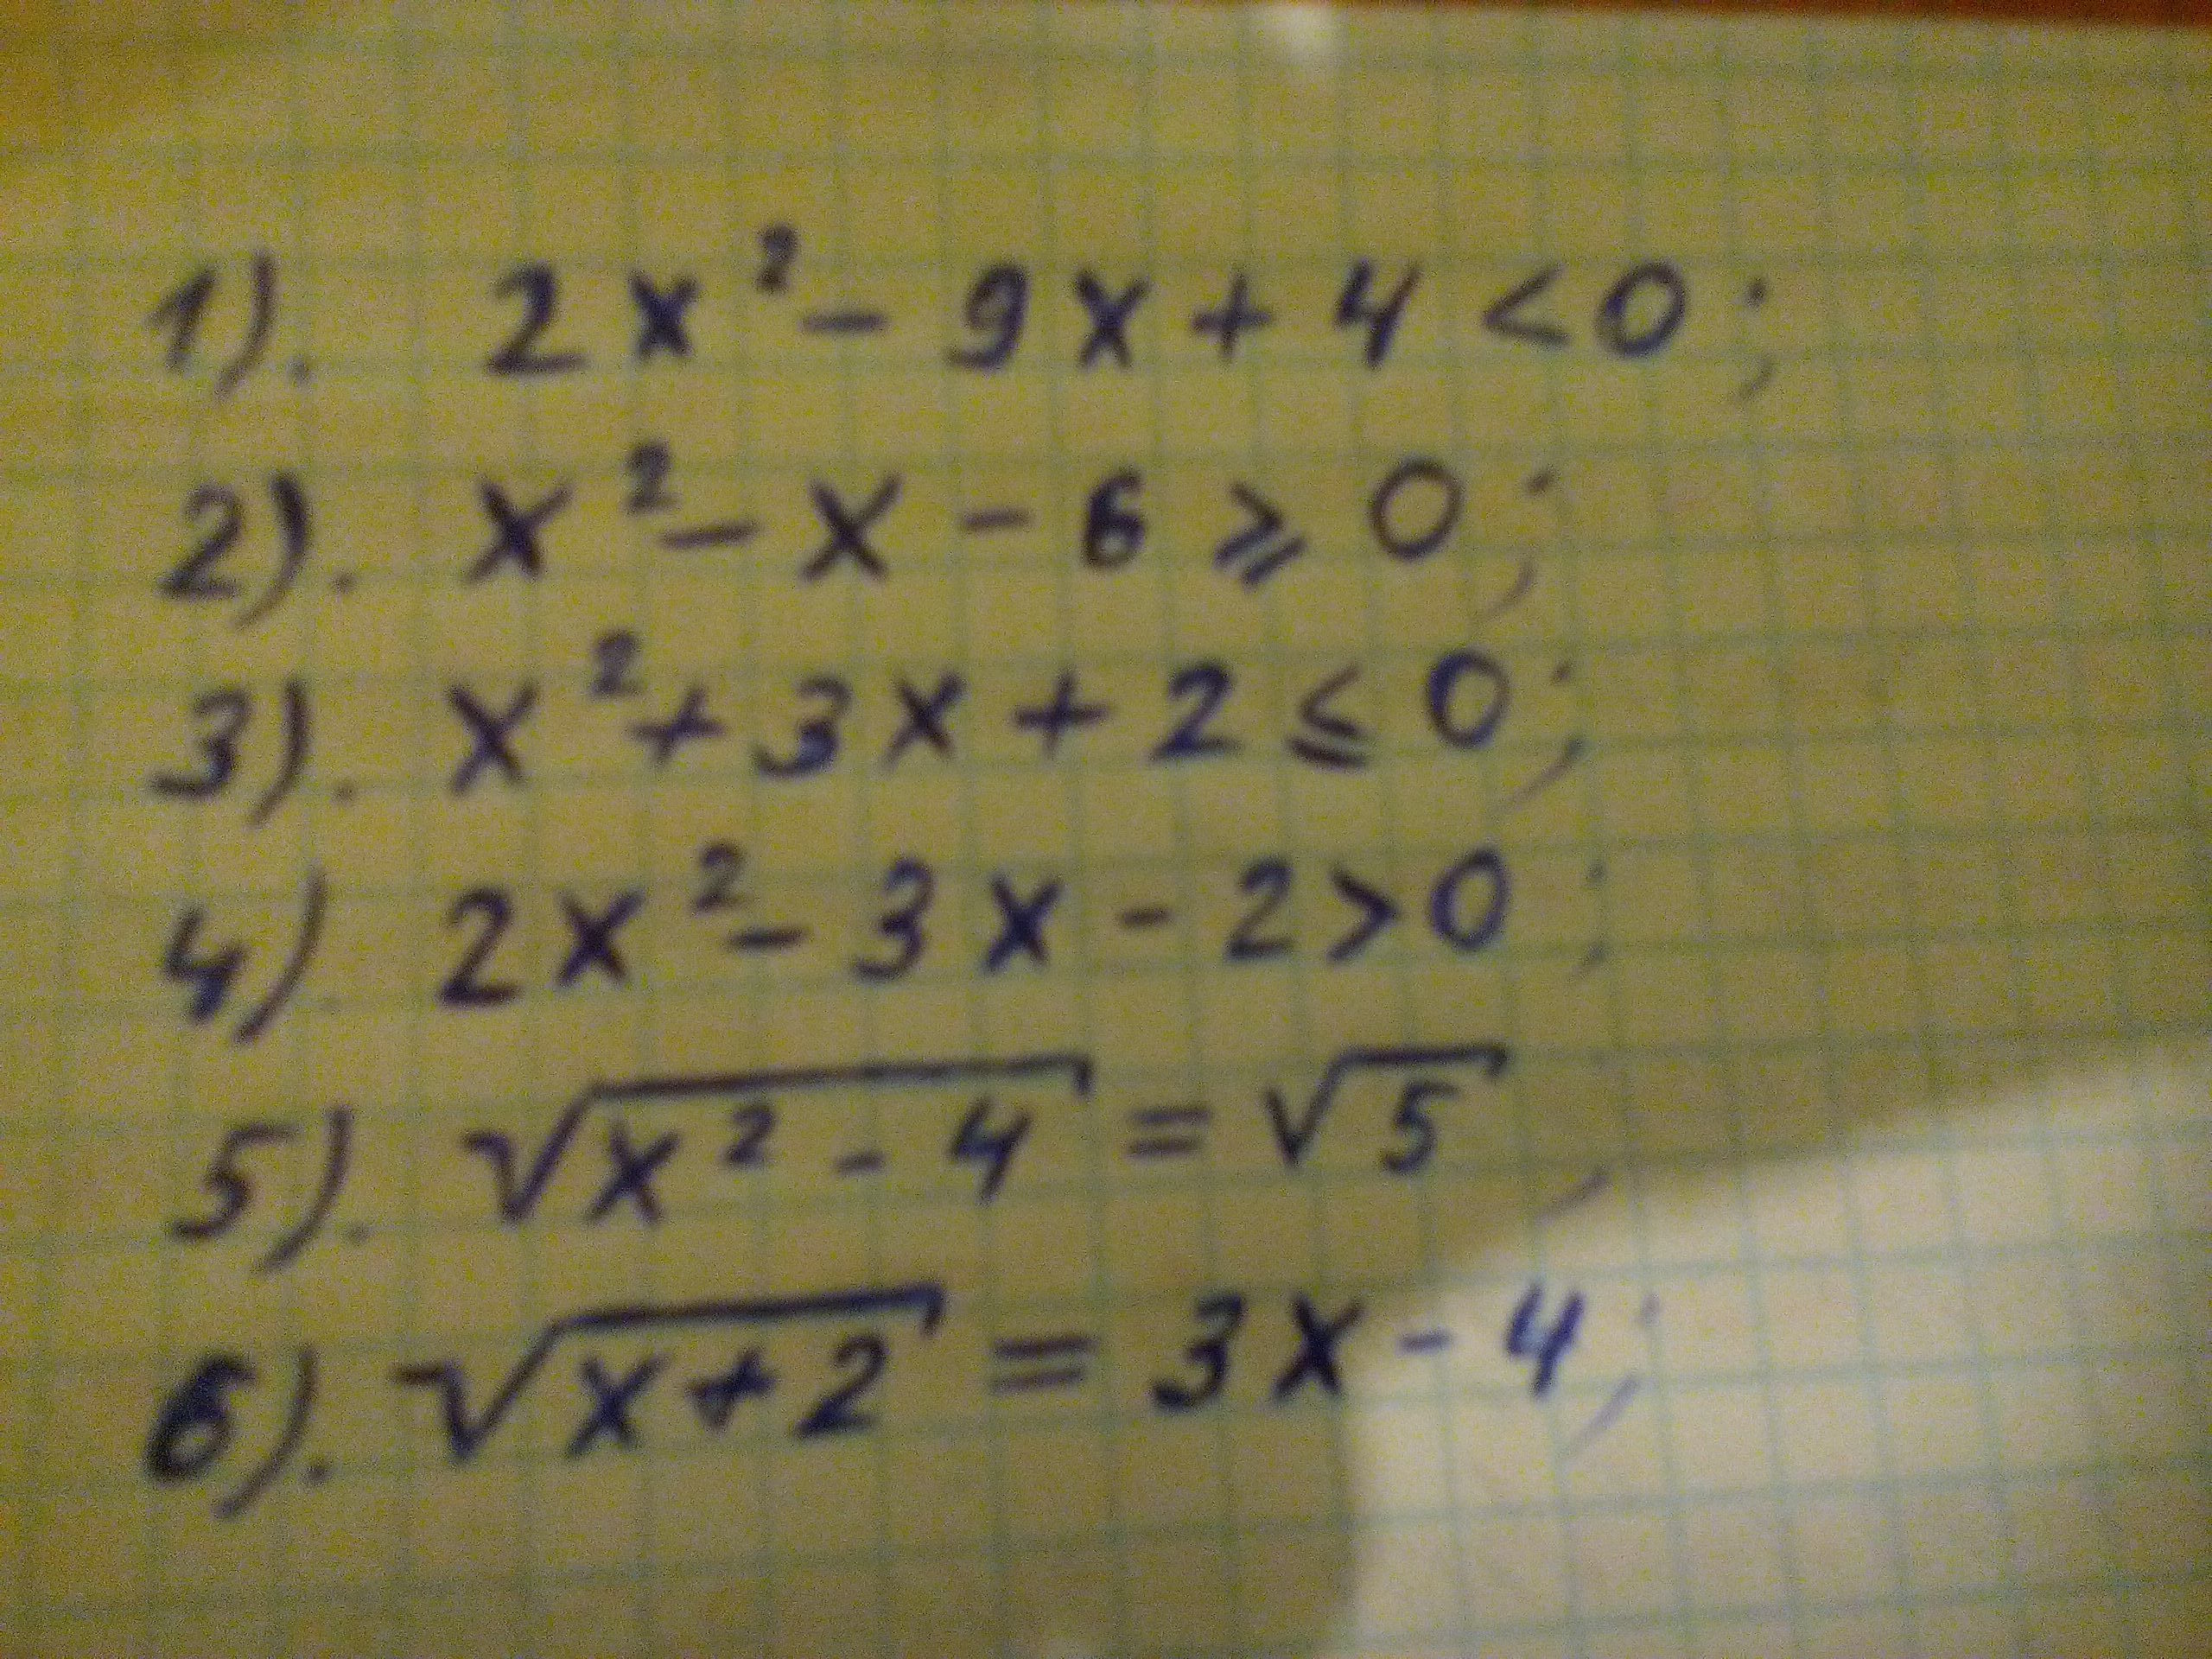 1). 2x² - 9x + 4 < 0;
2). x² - x - 6 ⩾ 0;
3). x² + 3x + 2 ≤ 0;
4) 2x² - 3x - 2 > 0;
5). √(x² - 4) = √5,
6). √(x + 2) = 3x - 4;